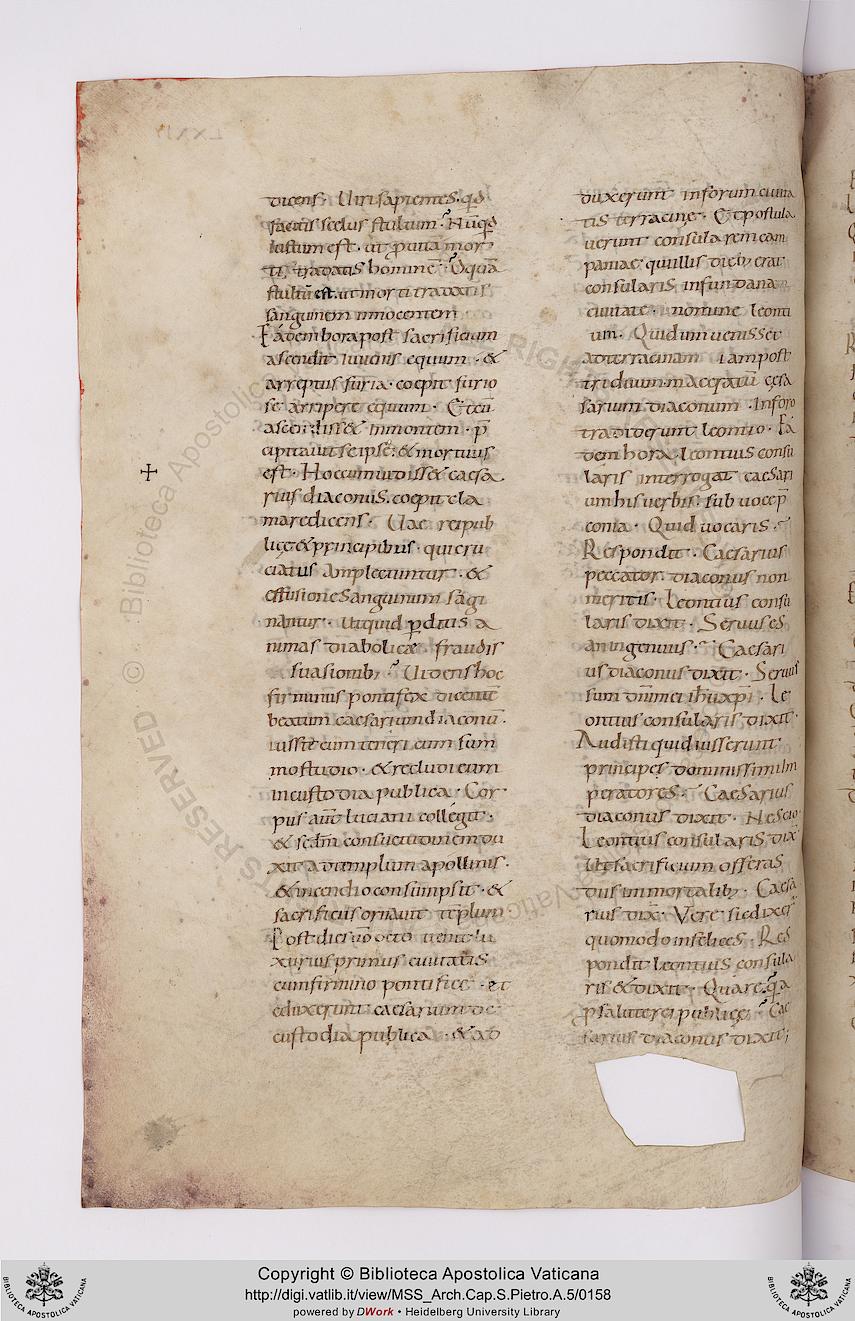 dicens · Uiri sapientes · qd
facitis scelus stultum · Nūqd
iustum est · ut ꝓ una mor
te tradatis homine · O quā
stultū est ut morti tradatis
sanguinem innocentem
Eadem hora post sacrificium
ascendit luuenis equum · &
arreptus furia · coepit furio
se arripere equum · Et cū
ascendiss& in montem · p̄
cipitauit se ipsē · & mortuus
est · Hoc cum uidiss& caesa
rius diaconus · coepit cla
mare dicens · Uae reipub
licę & principibus · qui cru
ciatus amplectuntur · &
effusione sanguinum sagi
nantur · Ut quid ꝑditis a
nimas diabolicæ fraudis
suasionib; Uidens hoc
firminus pontifex dicentē
beatum caesarium diaconū ·
iussit eum teneri cum sum
mo studio · & recludi eum
in custodia publica · Cor
pus aūt luciani collegit ·
& secdm consuetudinem du
xit ad templum apollinis ·
& incendio consumpsit · &
sacrificiis ornauit tēplum
Post dies uō octo uenit lu
xurius primus ciuitatis
cum firmino pontifice · et
eduxerunt caesarium de
custodia publica · & ad
duxerunt in forum ciuita
tis terracinę · Et postula
uerunt consularem cam
paniae · qui illis dieb; erat
consularis in fundana
ciuitate · nomine leonti
um · Qui dum uenisset
ad terracinam iam post
triduum maceratū caesa
sarium diaconum · In foro
tradiderunt leontio · Ea
dem hora · leontius consu
laris interrogat caesari
um his uerbis · sub uoce p̄
conia · Quid uocaris ·
Respondit · Caesarius
peccator · diaconus non
meritis · Leontius consu
laris dixit · Seruus es
an ingenuus · Caesari
us diaconus dixit · Seruus
sum dn̄i mei ihu xp̄i · Le
ontius consularis dixit ·
Audisti quid iusserunt
principes domini
peratores · Caesarius
diaconus dixit · Nescio ·
Leontius consularis dix̄
Ut sacrificium offeras
diis immortalib; · Caesa
rius dix̄ · Vere sic dixer̄
quomodo infelices · Res
pondit leontius consula
ris & dixit · Quare · q̄a
ꝓ salute rei publicę · Cae
sarius diaconus dixit;
Copyright © Biblioteca Apostolica Vaticana
http://digi.vatlib.it/view/MSS_Arch.Cap.S.Pietro.A.5/0158
powered by DWork • Heidelberg University Library